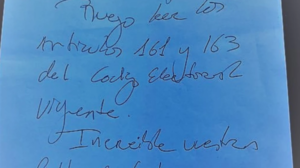 Ruego leer los
Artículos 161 y 163
del Código Electoral
vigente.
Increíble